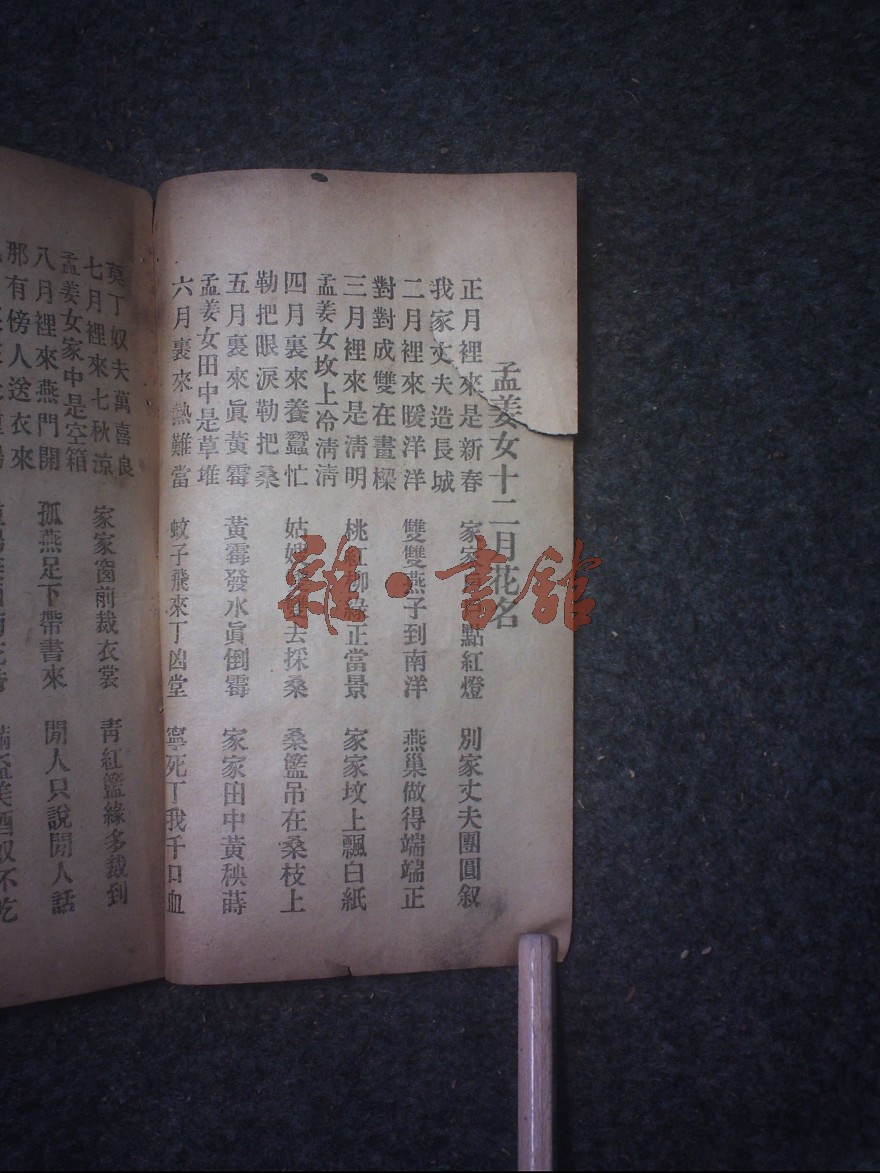 孟姜女十二月花名
正月裡來是新春　家家　點紅燈　別家丈夫團圓叙
我家丈夫造長城
二月裡來暖洋洋　雙雙燕子到南洋　燕巢做得端端正
對對成雙在畫樑
三月裡來是清明　桃紅柳綠正當景　家家墳上飄白紙
孟姜女坟上冷清清
四月裏來養蠶忙　姑嫂　去採桑　桑籃吊在桑枝上
勒把眼淚勒把桑
五月裏來眞黃霉　黃霉發水眞倒霉　家家田中黃秧蒔
孟姜女田中是草堆
六月裏來熱難當　蚊子飛來丁凶堂　寧死丁我千口血
莫丁奴夫萬喜良
七月裡來七秋涼　家家窗前裁衣裳　青紅籃緣多裁到
孟姜女家中是空箱
八月裡來燕門開　孤燕足下帶書來　閒人只說閒人話
那有傍人送衣來
雜·書舘